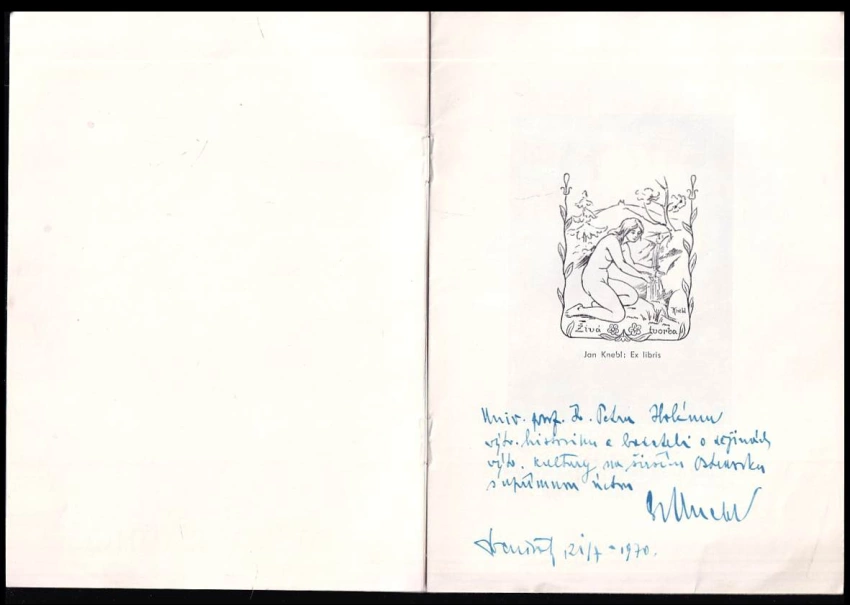 Živá tvorba
Knebl
Jan Knebl: Ex libris
Univ. prof. Dr. Petru Holému
výtv. historiku a badateli o dějinách
výtv. kultury na širším Ostravsku
s upřímnou úctou
Knebl
21/7 - 1970.